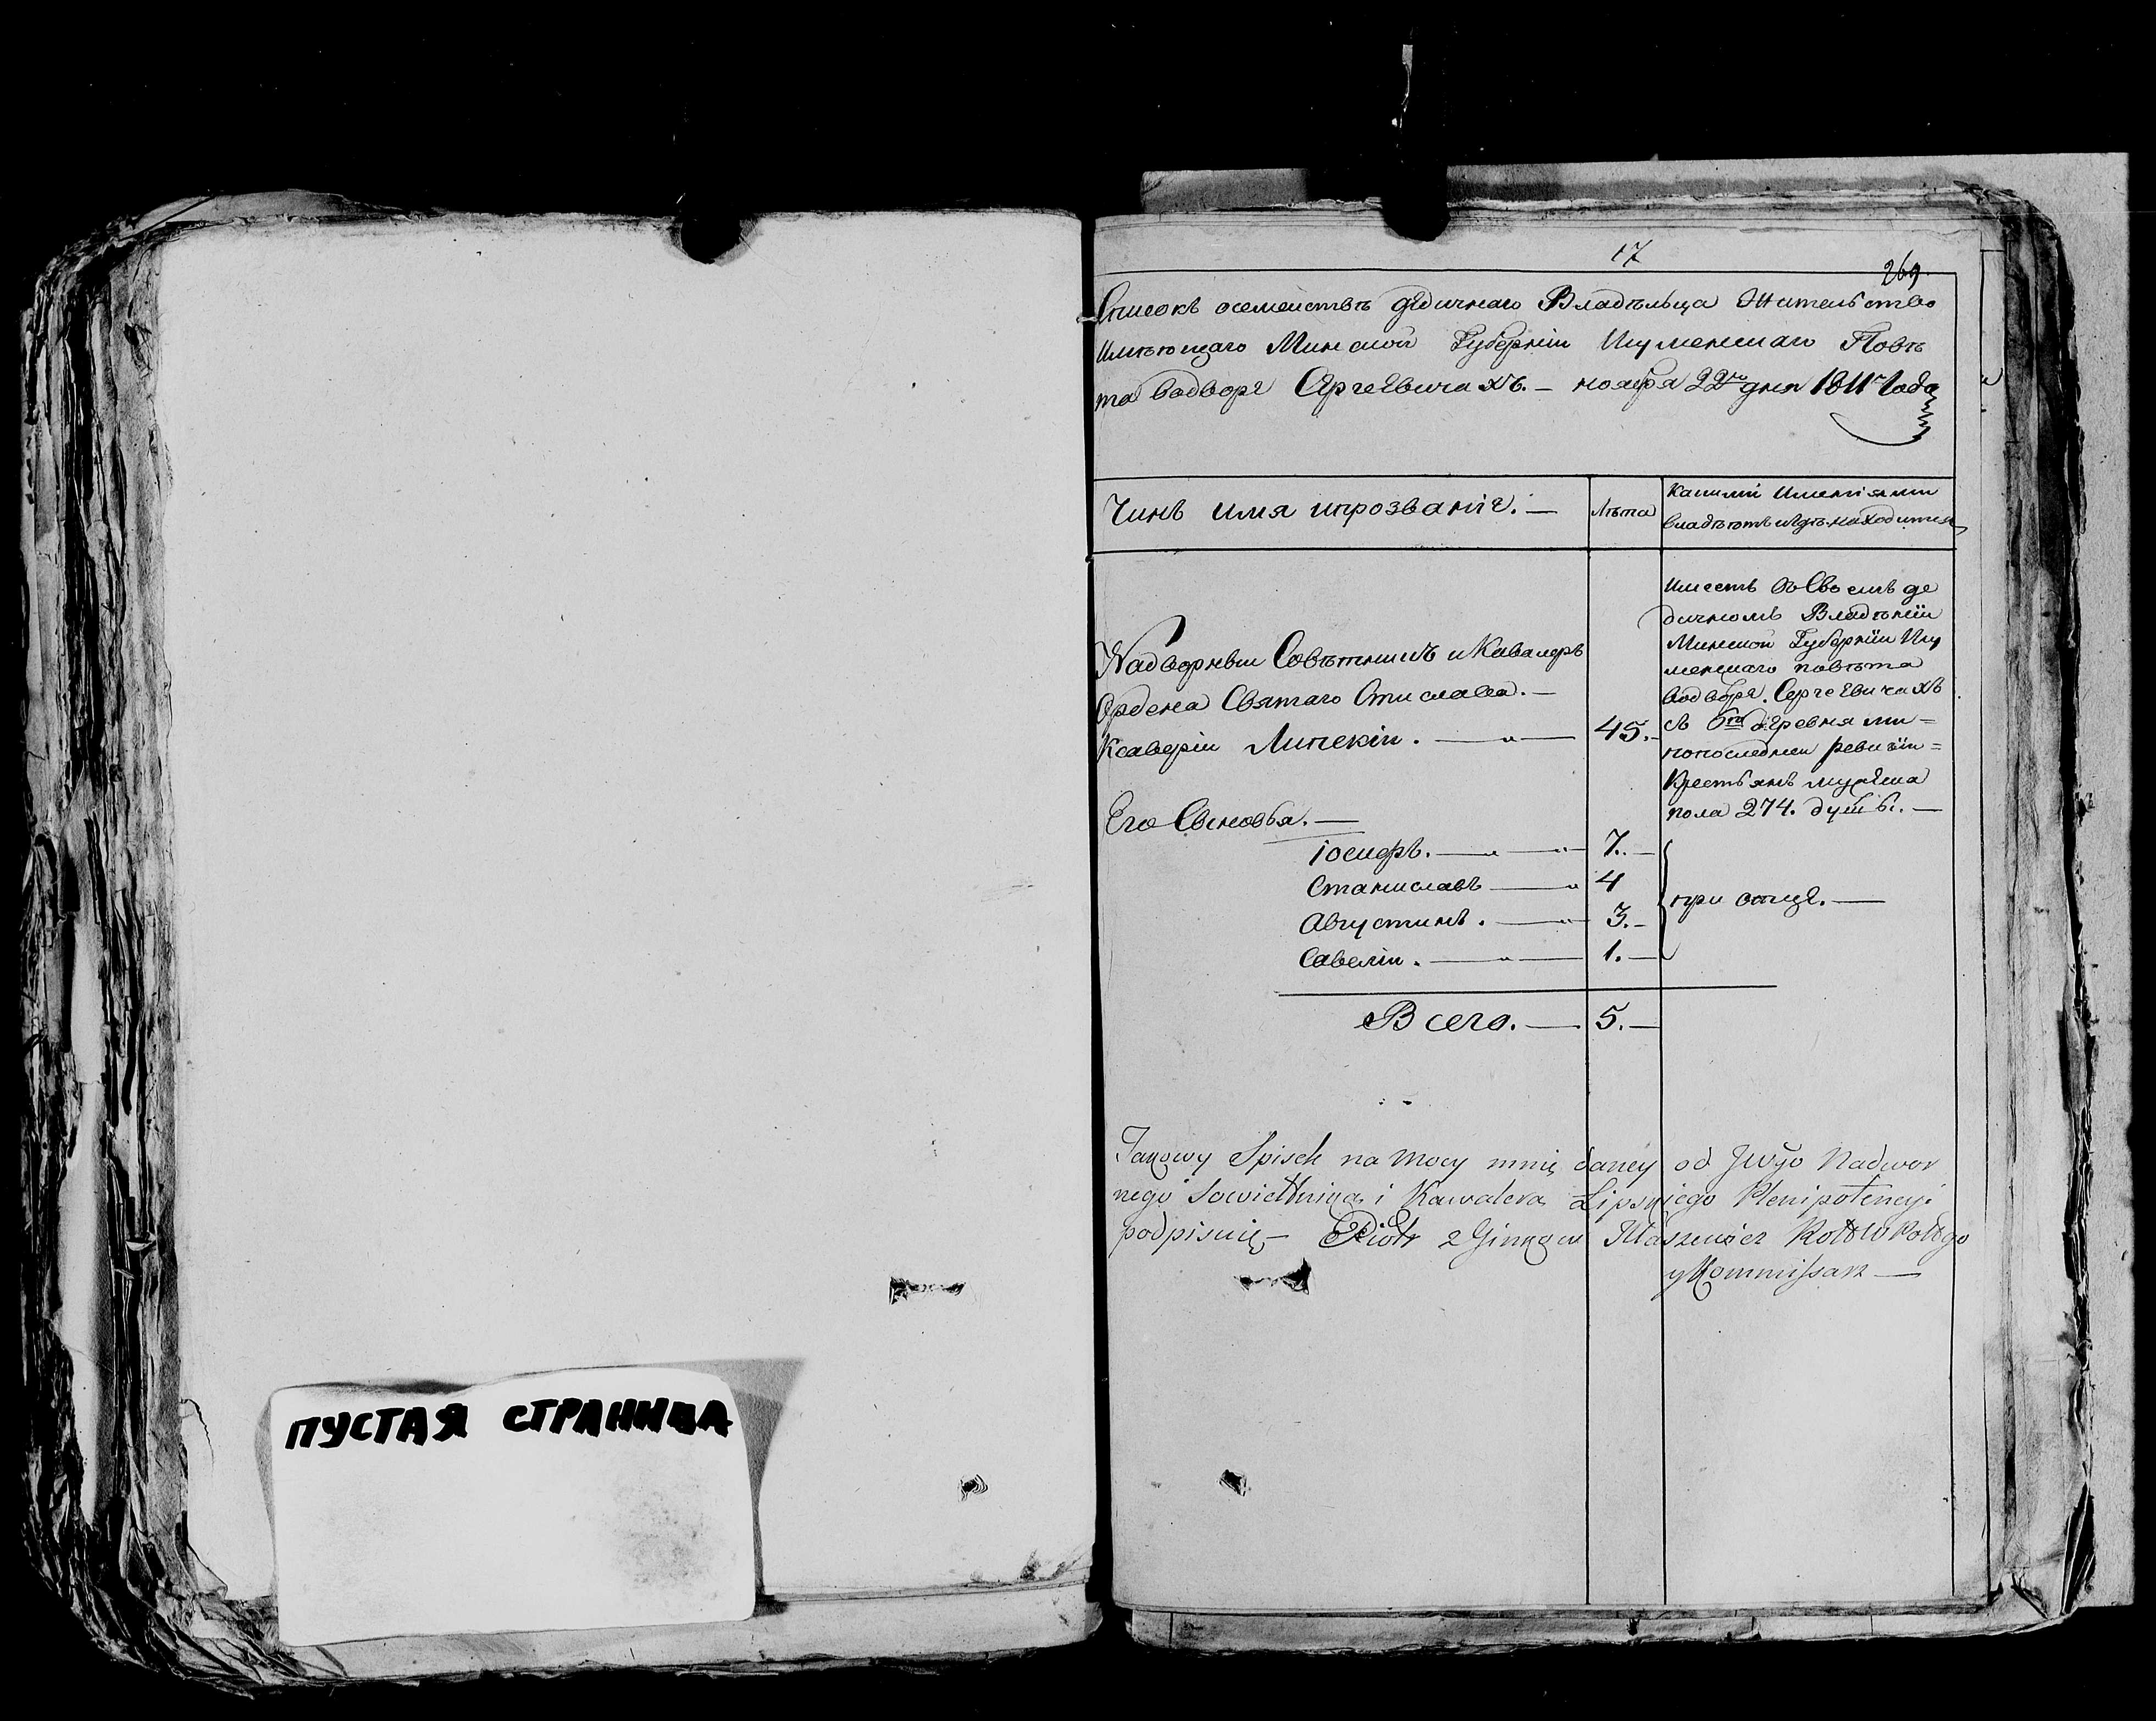 ПУСТАЯ СТРАНИЦА
17
269.
Списокъ осемействѣ дѣдичнаго Владѣльца Жительство
Имѣющаго Минской Губерніи Игуменскаго Повѣ
та водворѣ Сергѣевичахъ. — ноября 22го дня 1811го Года
Чинъ имя ипрозваніе. —
Лѣта
Какими Имѣніями
владѣетъ игдѣ находится
Надворный Совѣтникъ и Кавалеръ
Ордена Святаго Стислава. —
Ксаверіи Липскіи. — " — 45. —
Имѣетъ въ Своемъ дѣ
дичномъ Владѣніи
Минской Губерніи Игу
менскаго повѣта
водворѣ. Сергѣевичахъ
съ 6ти деревнями =
попоследней ревизіи =
Крестьянъ мужеска
пола 274. душъ. —
Его Сыновья. —
Іосифъ. — " — " — 7. —
Станиславъ — " 4
Августинъ. — " — 3. —
Савеліи. — " — 1. —
при отцѣ. —
Всего. — 5. —
Takowy Spisek na Mocy mnię daney od JWgo Nadwor
nego Sowiettnika i Kawalera Lipskiego Plenipotencyi
podpisuię — Piotr z Ginkow
y Kommissarz —